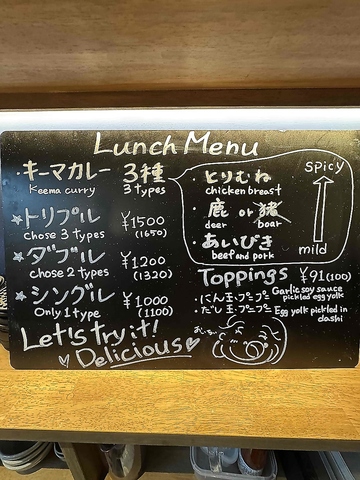 Lunch Menu
・キーマカレー 3種
Keema curry 3 types
☆トリプル ¥1500
chose 3 types (1650)
☆ダブル ¥1200
chose 2 types (1320)
☆シングル ¥1000
Only 1 type (1100)
Let's try it!
Delicious
・とりむね
chicken breast
・鹿 or 猪
deer boar
・あいびき
beef and pork
spicy
mild
Toppings ¥91(100)
・にんにく玉・プープー Garlic soy sauce
pickled egg yolk
・だし玉・プープー Egg yolk pickled in
dashi